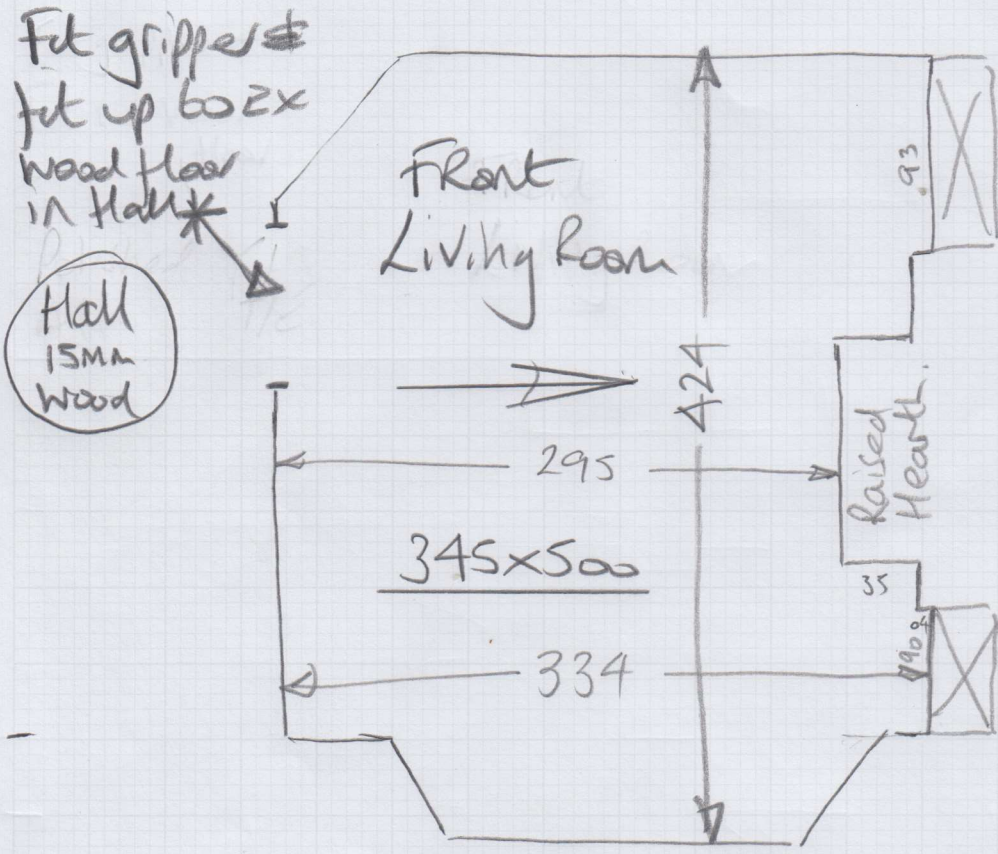 Fit gripper &
fit up to Ex
wood floor
in Hall *
Hall
15mm
wood
Front
Living Room
93
424
295
Raised
Hearth.
345x500
35
334